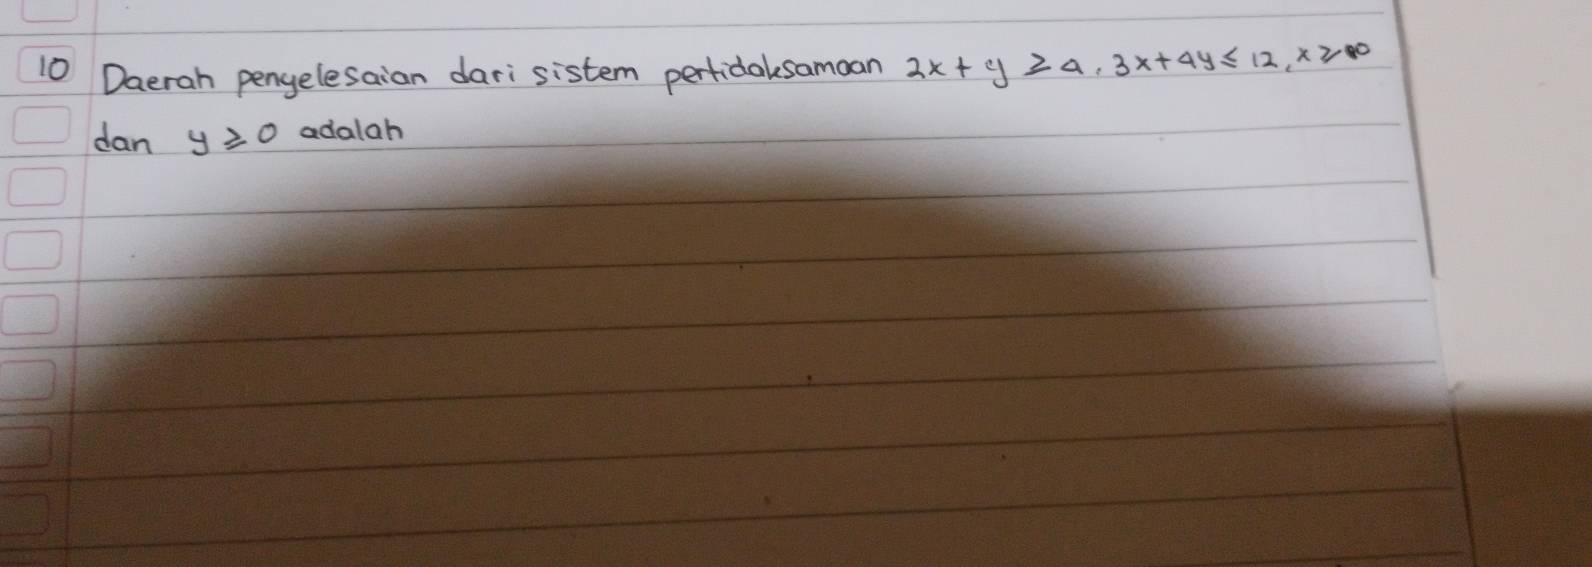 10 Daerah penyelesaian dari sistem pertidaksamaan 2x + y ≥ 4, 3x + 4y ≤ 12, x ≥ 0
dan y ≥ 0 adalah